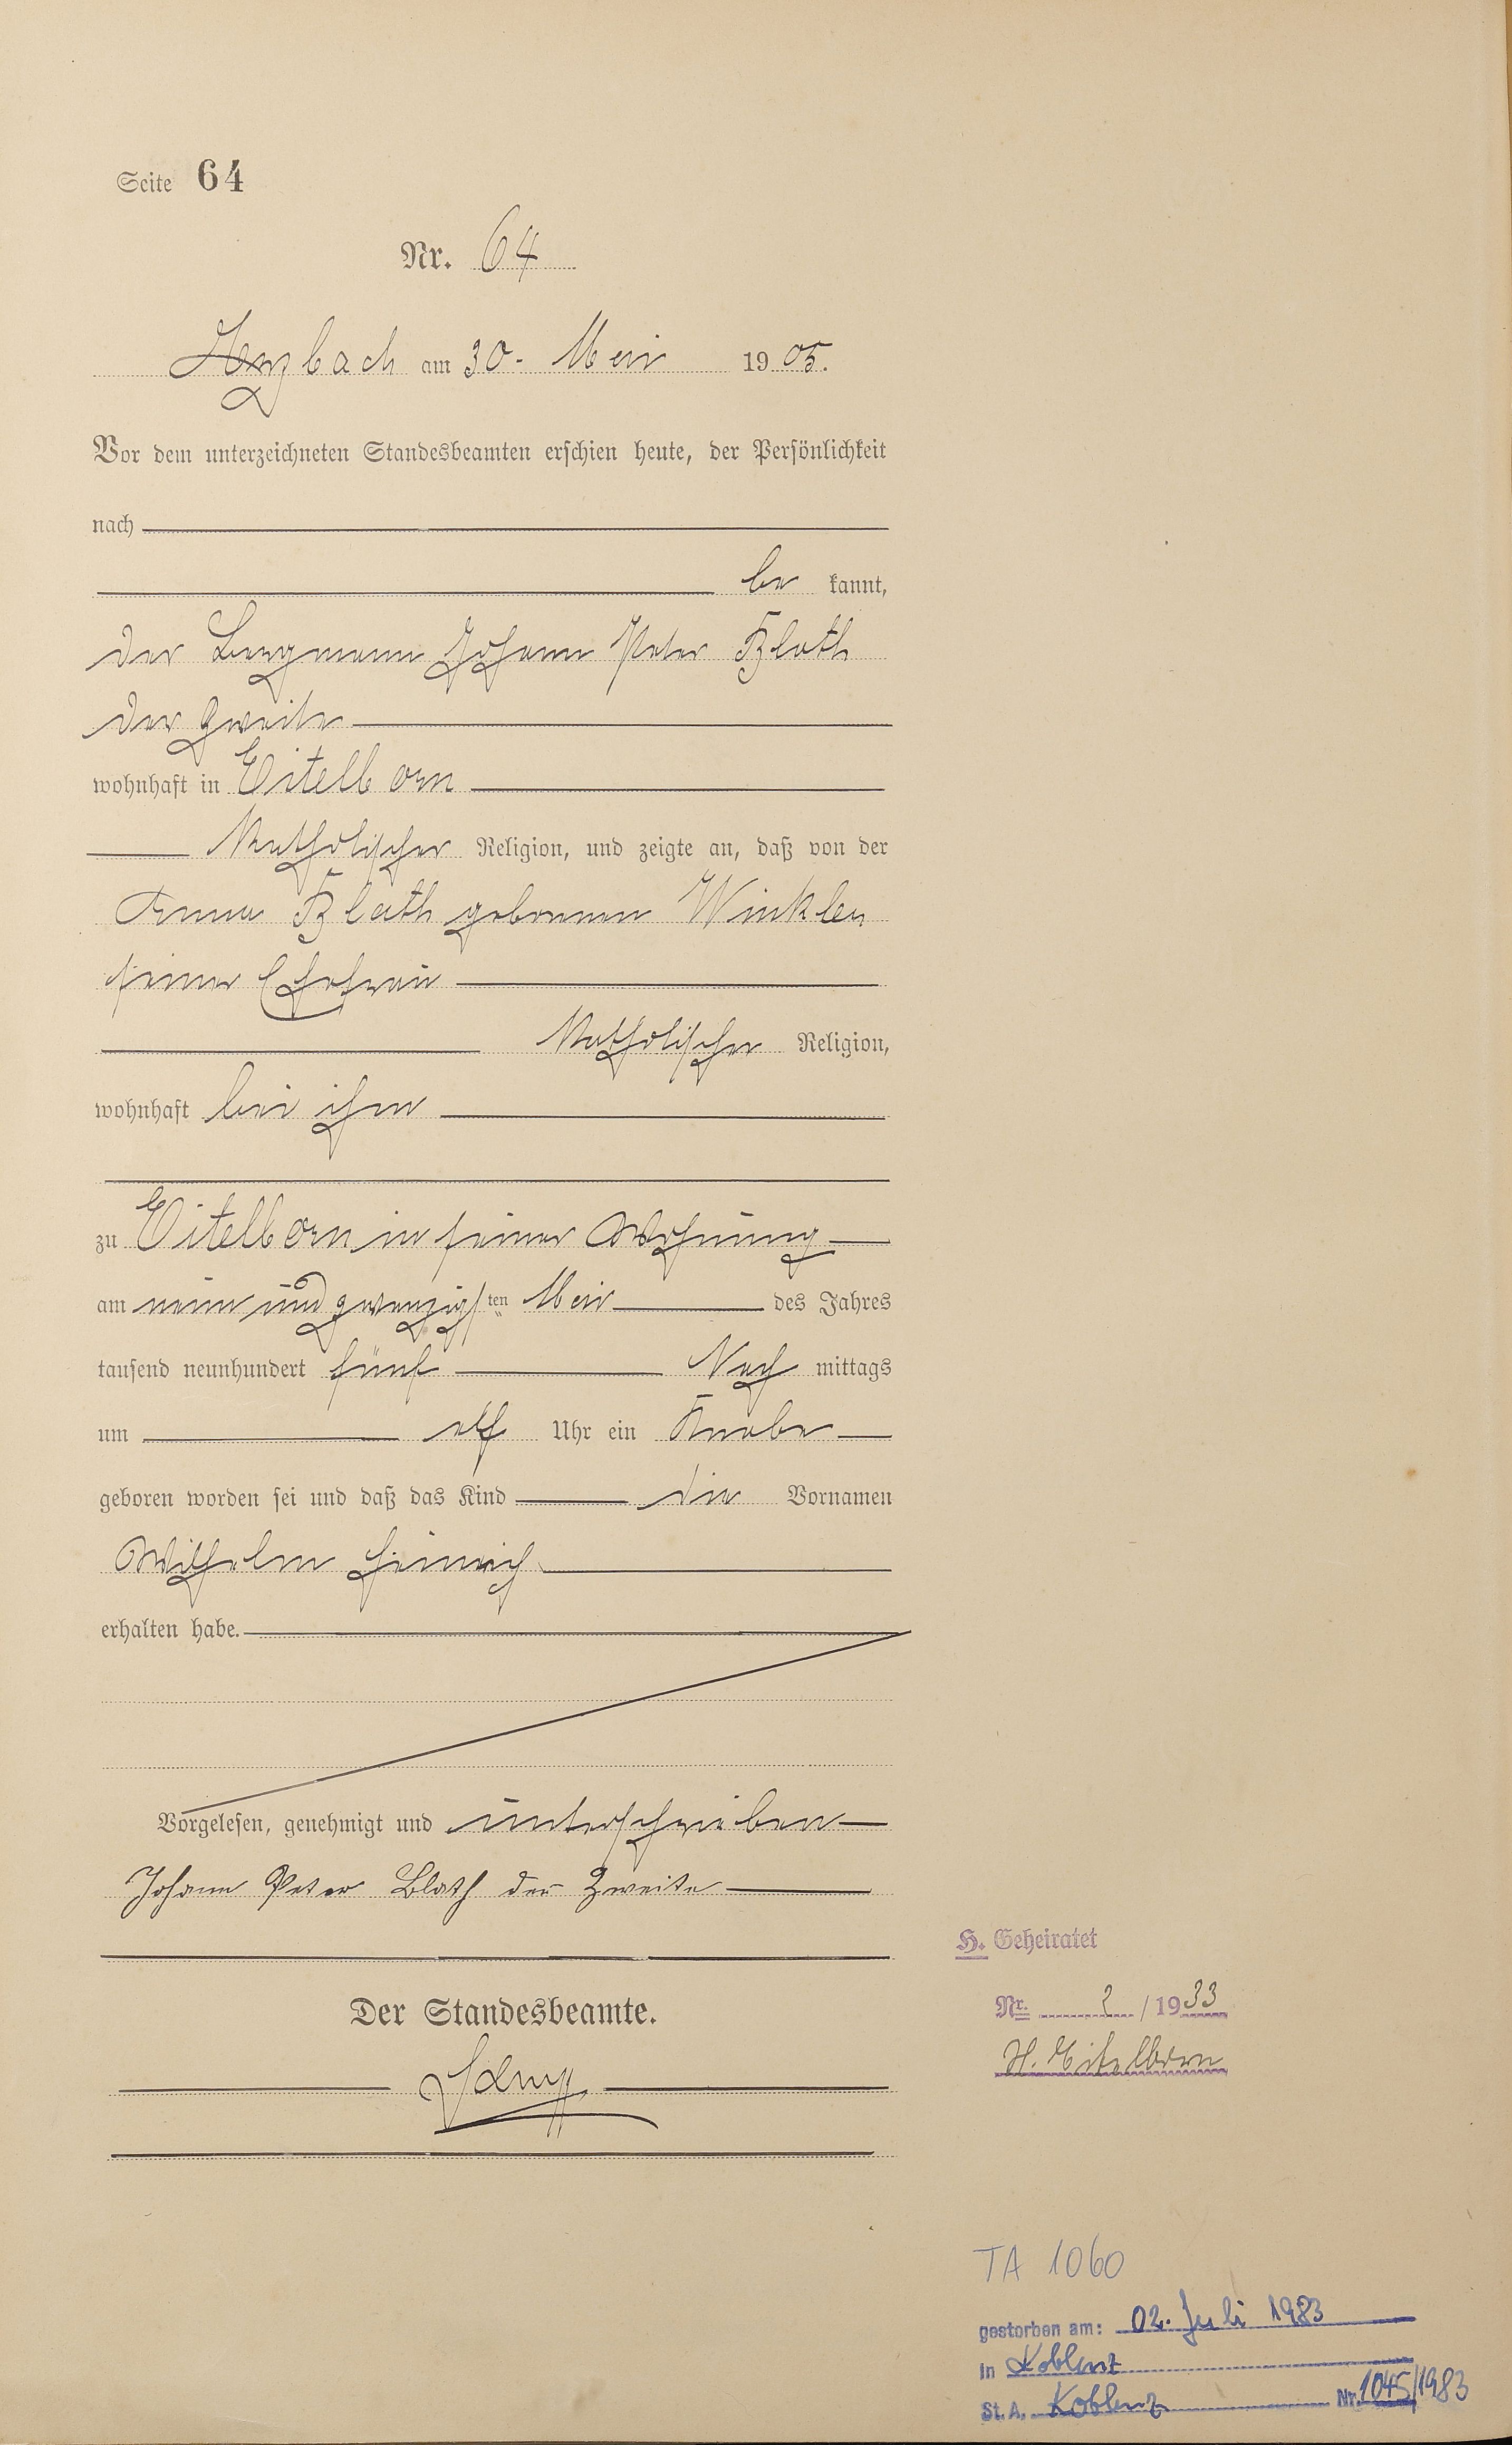 Seite 64
Nr. 64
Arzbach am 30. Mai 1905.
Vor dem unterzeichneten Standesbeamten erschien heute, der Persönlichkeit
nach
be kannt,
der Bergmann Johann Peter Blath
der Zweite
wohnhaft in Eitelborn
Katholischer Religion, und zeigte an, daß von der
Anna Blath geborenen Winkler
seiner Ehefrau
Katholischer Religion,
wohnhaft bei ihm
zu Eitelborn in seiner Wohnung
am neun und zwanzigsten Mai des Jahres
tausend neunhundert fünf Nach mittags
um elf Uhr ein Knabe
geboren worden sei und daß das Kind die Vornamen
Wilhelm Heinrich
erhalten habe.
Vorgelesen, genehmigt und unterschrieben
Johann Peter Blath der Zweite
Der Standesbeamte.
H. Geheiratet
Nr. 2 / 1933
St. Eitelborn
TA 1060
gestorben am: 02. Juli 1983
in Koblenz
St. A. Koblenz Nr. 1045/1983